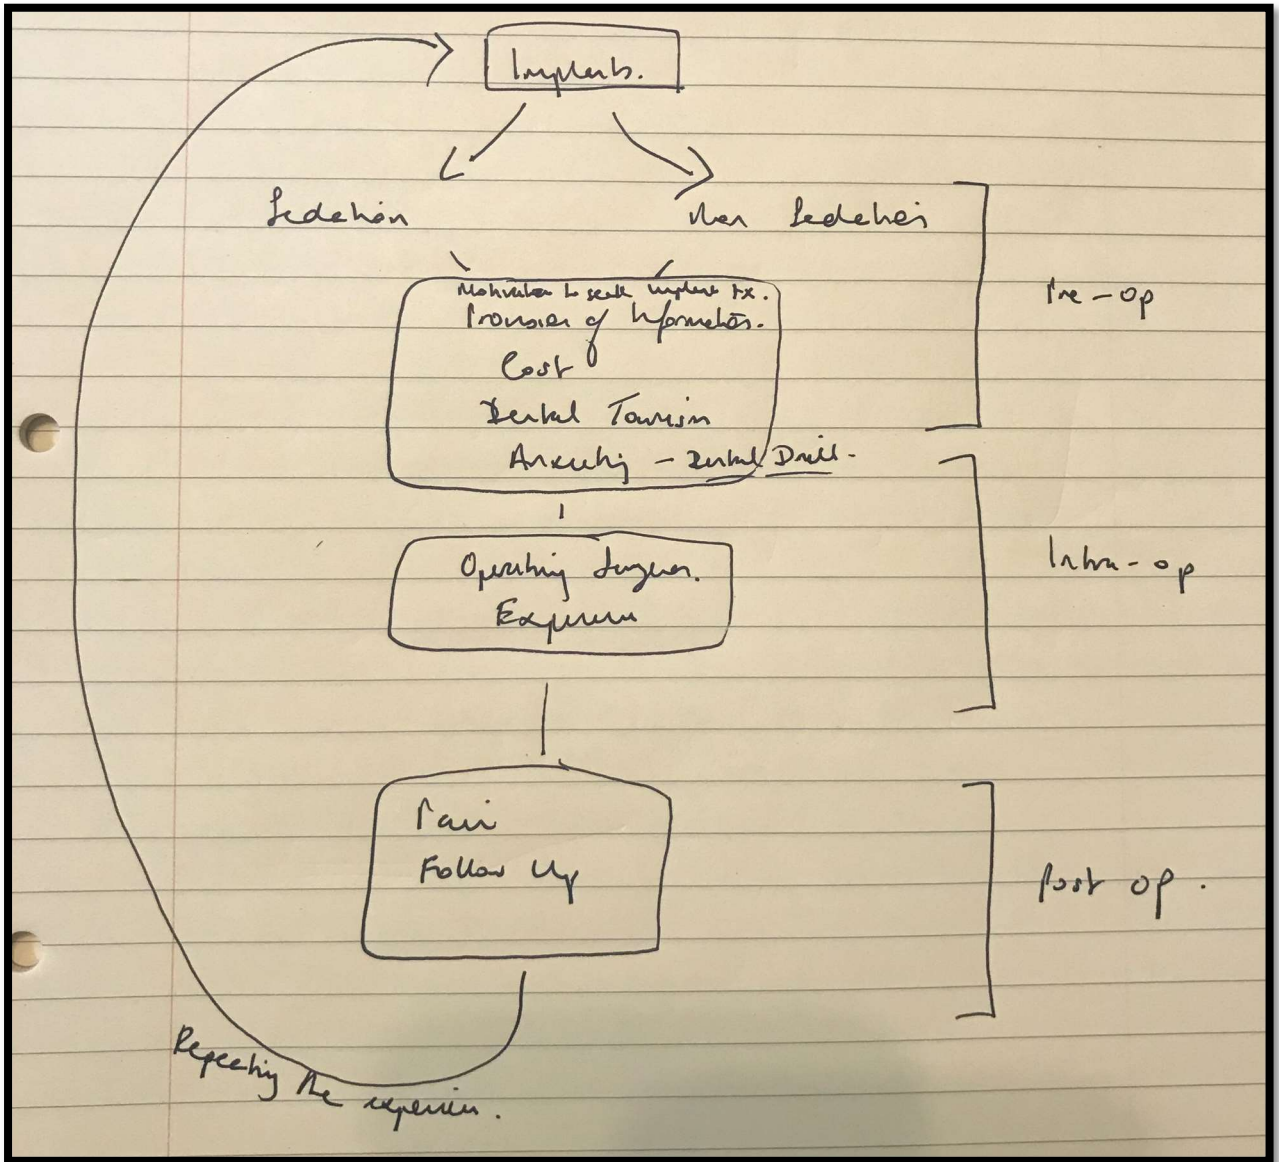 Implants.
Sedation
Non Sedation
Motivation to seek implant tx.
Provision of Information.
Cost
Dental Tourism
Anxiety - Dental Drill.
Pre-op
Operating Surgeon.
Experience
Intra-op
Pain
Follow Up
Post op.
Repeating the experience.